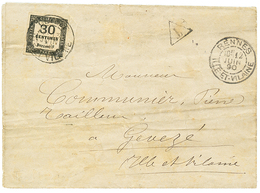 30
CENTIMES
T
RENNES
JUIN
90
ILLE-ET-VILAINE
Monsieur
Communier, Père
Tailleur
à Gévezé
Ille et Vilaine